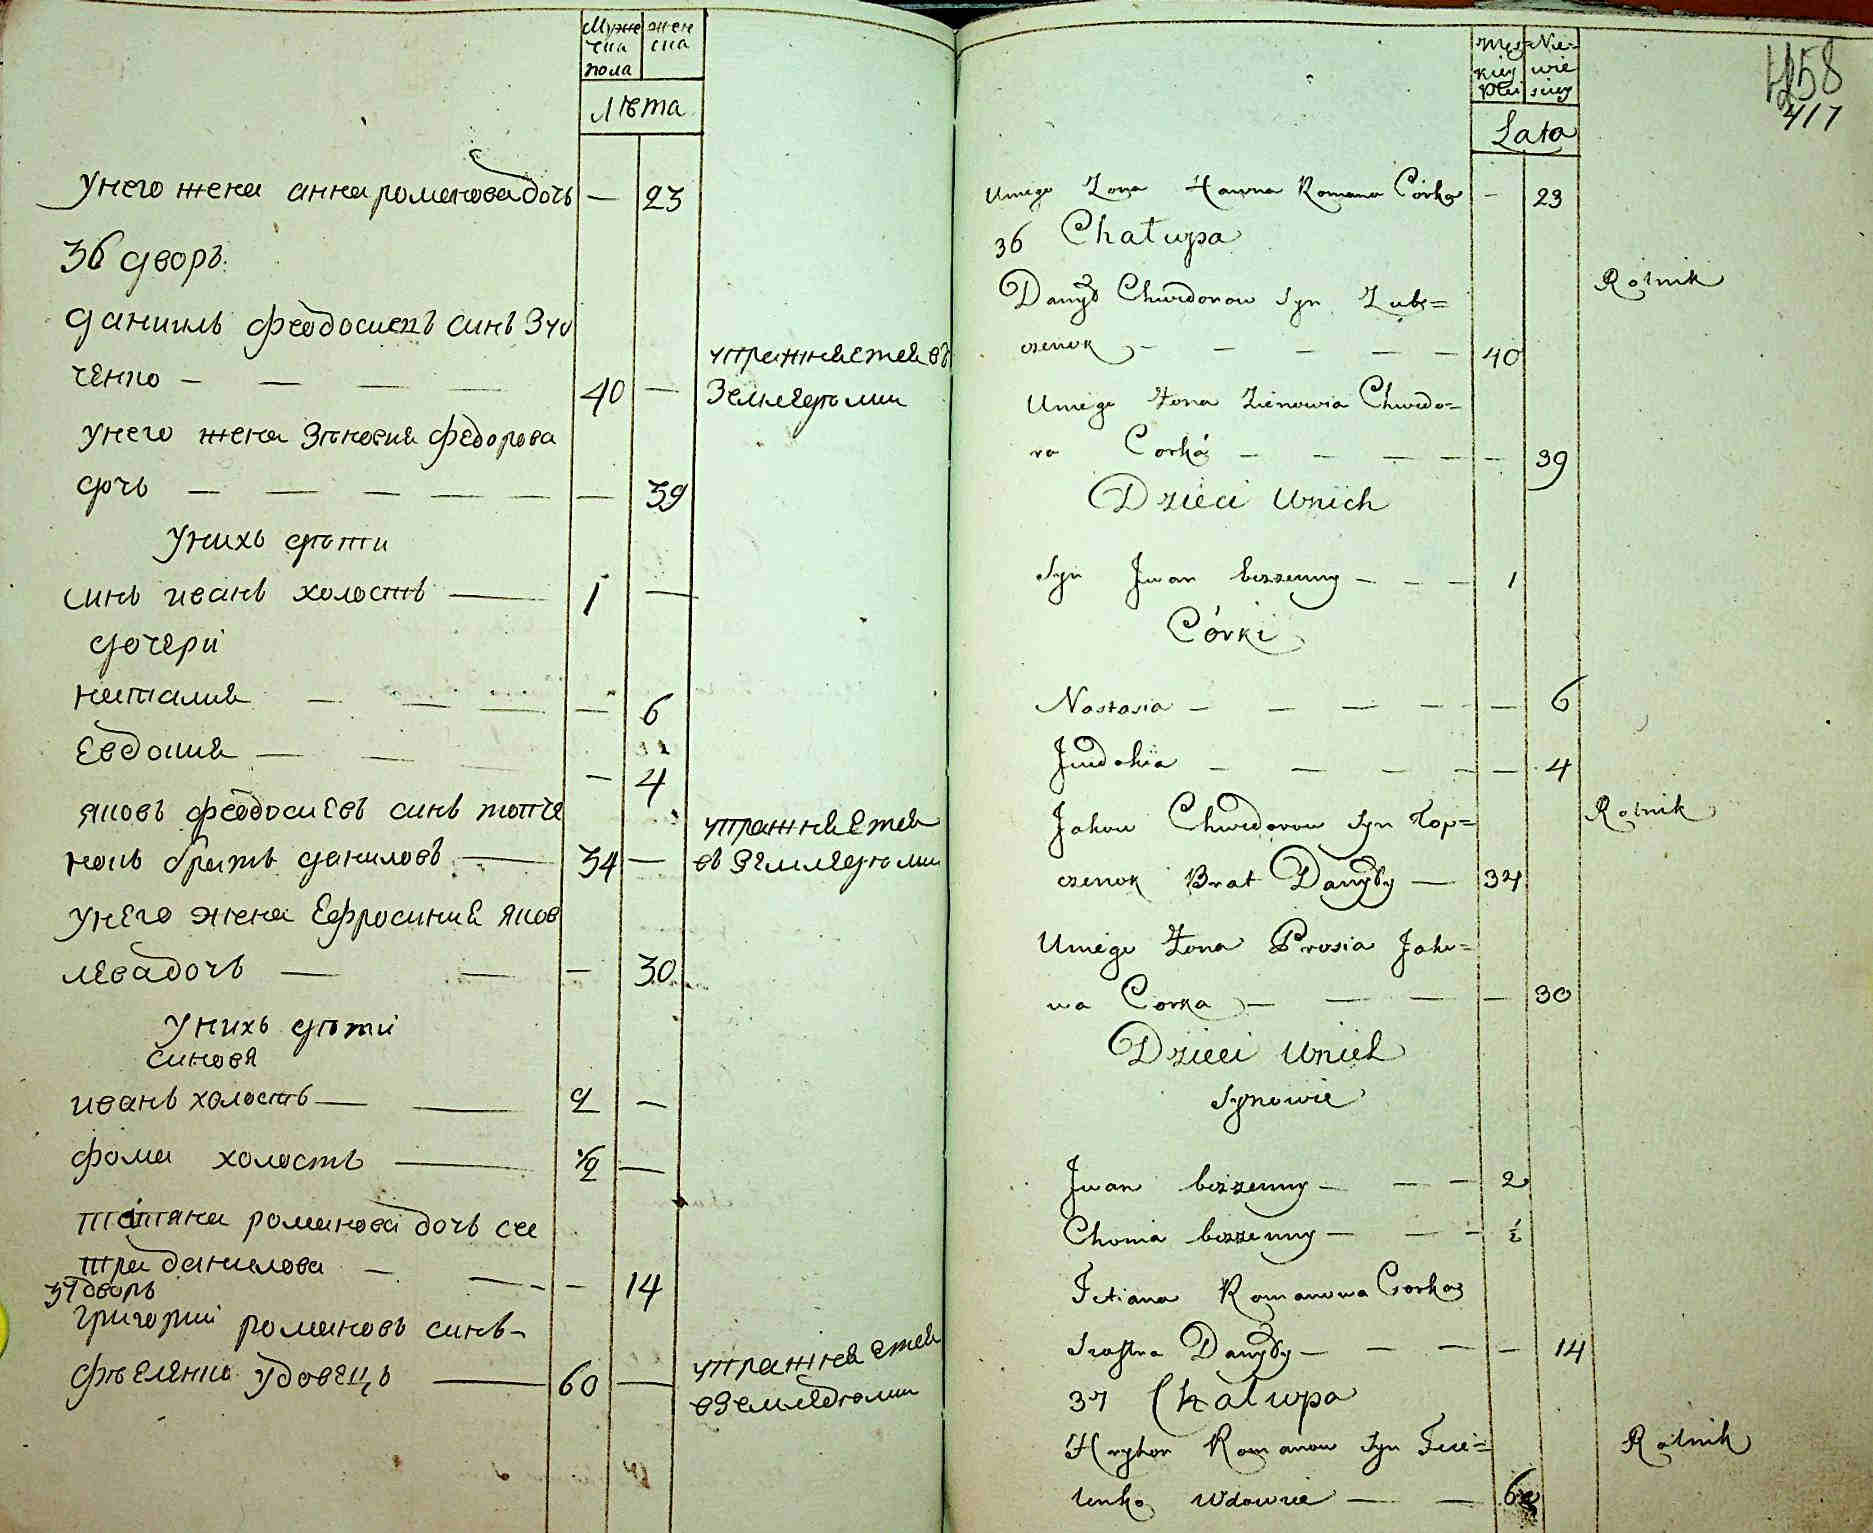 Мужеска пола
женска
Лѣта
унего жена анна романова дочь — 23
36 дворъ.
данiилъ феодосиевъ синъ Зуб
ченко — — — — 40 —
упражняется въ
Земледелии
унего жена Зѣновия федорова
дочь — — — — — — 39
Унихъ дѣти
синъ иванъ холостъ — 1 —
дочери
наталия — — — — — 6
Евдокия — — — — 4
яковъ феодосиевъ синъ топче
нокъ братъ даниловъ — 34 —
упражняется
въ Земледелии
унего жена Ефросиния яков
лева дочь — — — 30
Унихъ дѣти
синовя
иванъ холостъ — — 2 —
фома холостъ — 1/2 —
татияна романова дочь сес
тра данилова — — — — 14
37 дворъ
Григорий романовъ синъ
удовецъ — 60 —
упражняется
в Земледелии
Męzkiey Płci
Niewieściey
Lata
458
417
Uniego Zona Hanna Romana Córka — 23
36 Chałupa
Danyło Chwedorow Syn Zub=
czenok — — — — — 40
Rolnik
Uniego Zona Zienowia Chwedo=
ra Corká — — — — — 39
Dzieci Unich
Syn Jwan bezzenny — — — 1
Córki
Nastasia — — — — — 6
Jewdokia — — — — — 4
Jakow Chwedorow Syn Top=
czenok Brat Danyły — 34
Rolnik
Uniego Zona Prosia Jako=
wa Corka — — — — 30
Dzieci Unich
Synowie
Jwan bezzenny — — — 2
Choma bezzenny — — — 1/2
Tetiana Romanowa Corka
Siostra Danyły — — — — 14
37 Chałupa
Hryhor Romanow Syn
Rolnik
Wdowiec — — 60